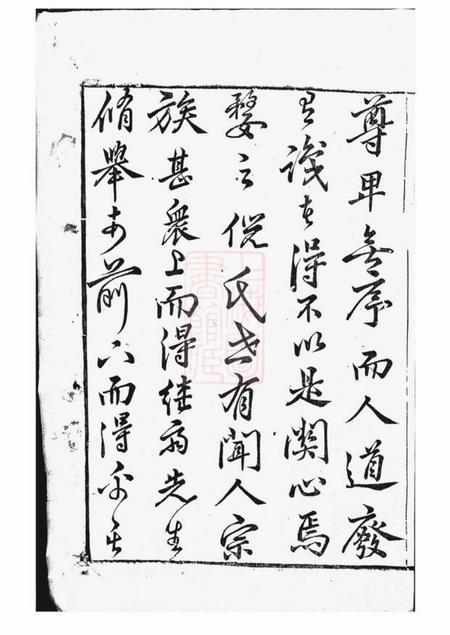 尊卑無序而人道廢
有識者得不以是關心焉
婺之倪氏世有聞人宗
族甚衆上而得継翁先生
脩舉於前下而得